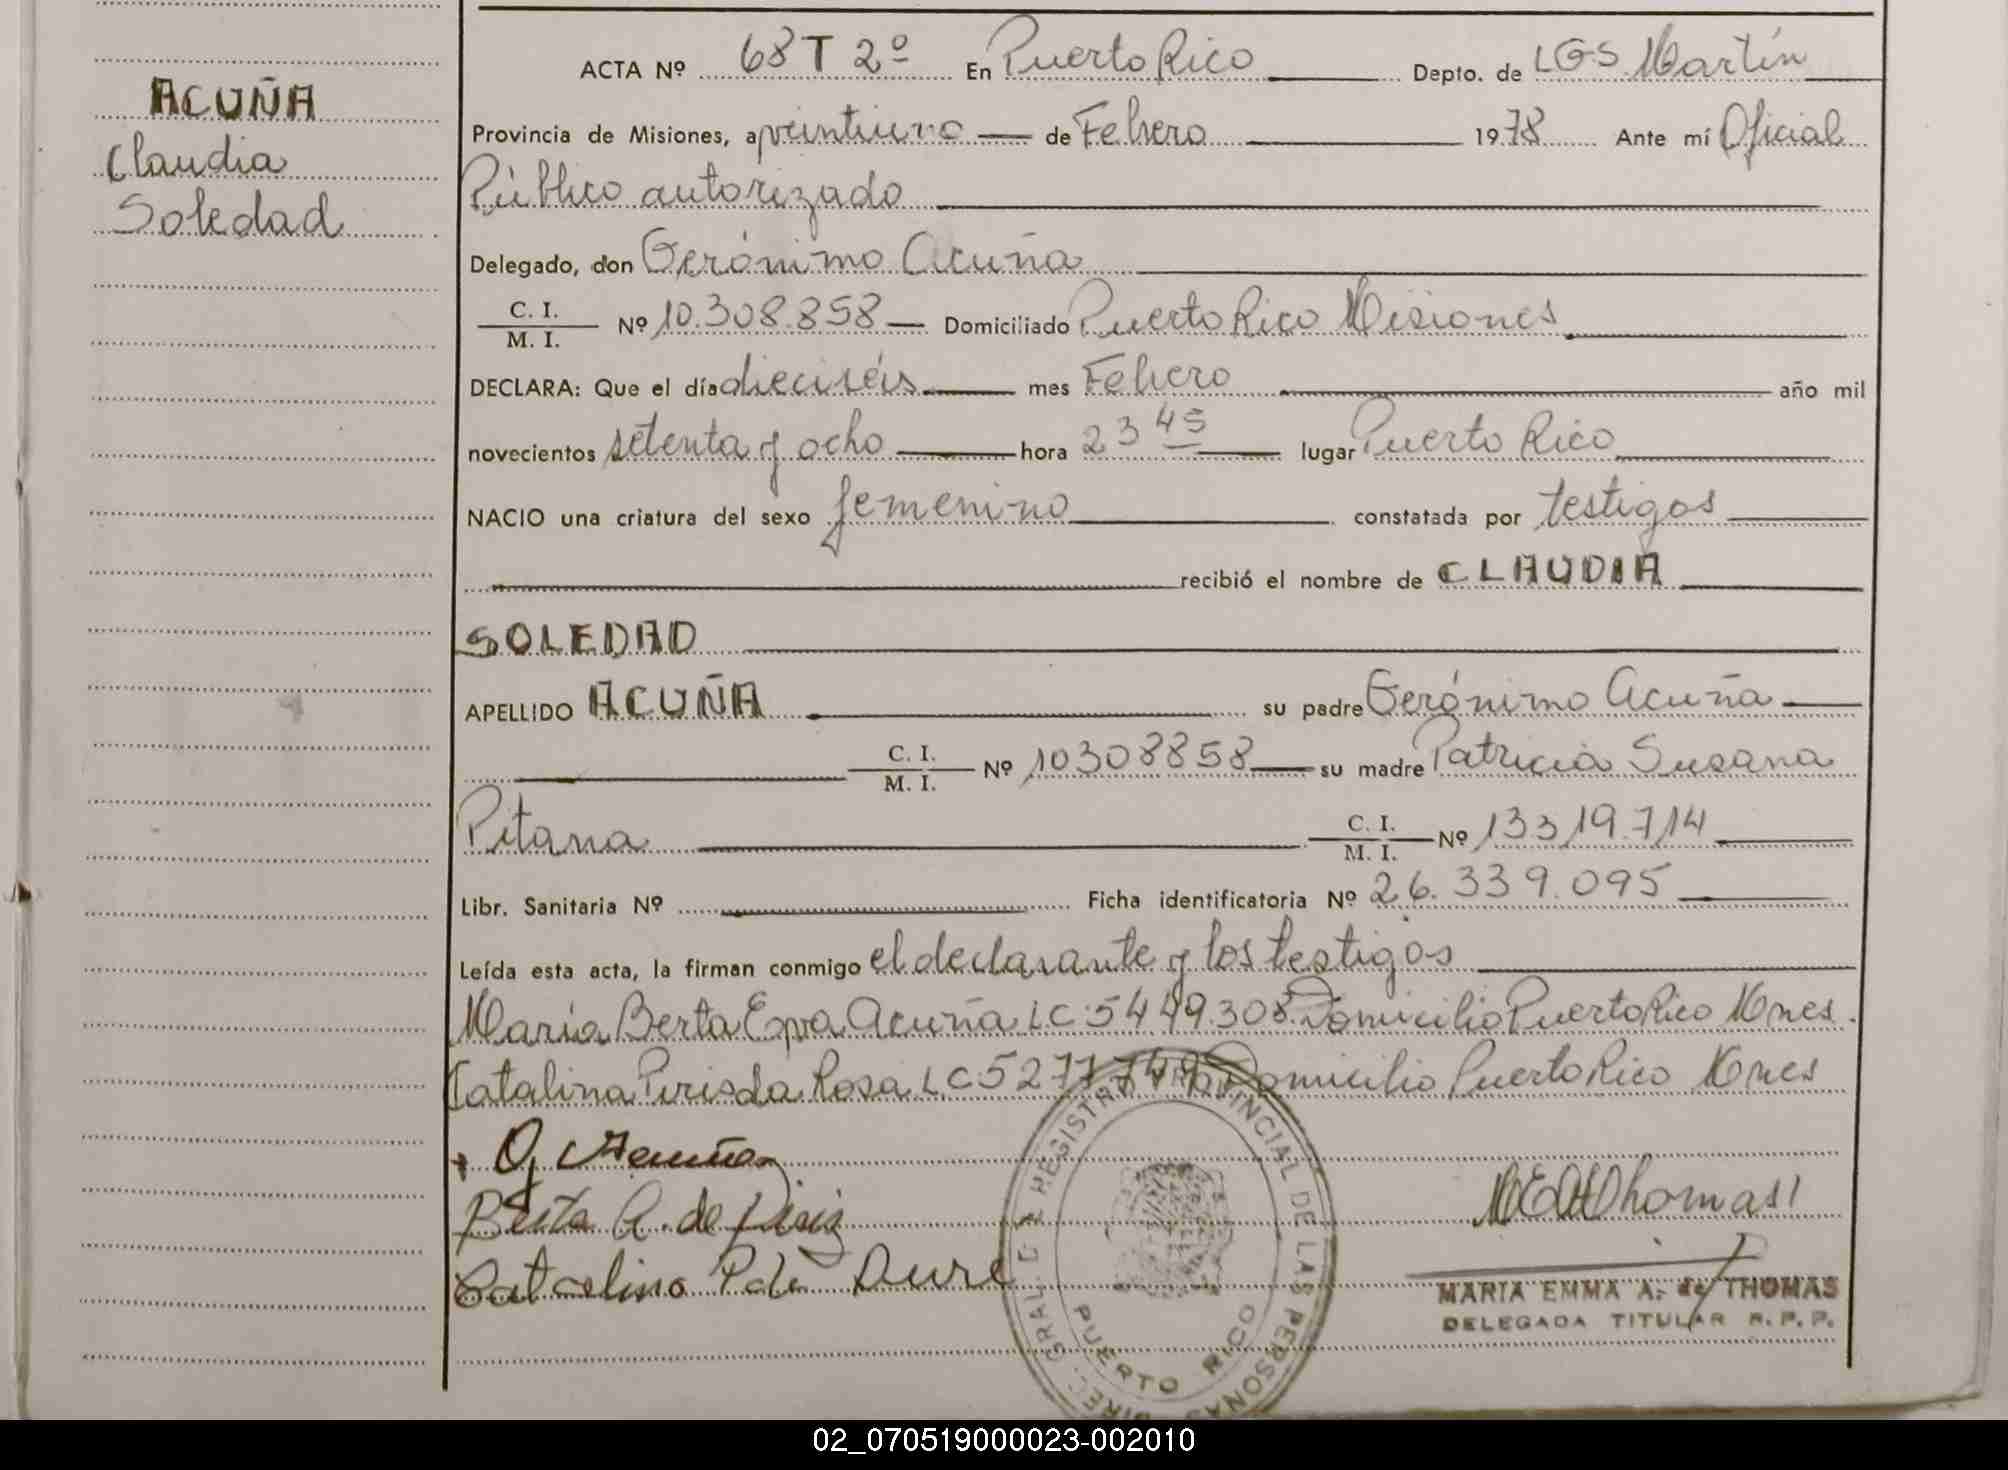 ACUÑA
Claudia
Soledad
ACTA Nº 68 T 2º En Puerto Rico Depto. de LGS. Martín
Provincia de Misiones, a veintiuno de Febrero 1978 Ante mí Oficial
Público autorizado
Delegado, don Gerónimo Acuña
C. I.
M. I. Nº 10.308.858 Domiciliado Puerto Rico Misiones
DECLARA: Que el día dieciséis mes Febrero año mil
novecientos setenta y ocho hora 23 45 lugar Puerto Rico
NACIO una criatura del sexo femenino constatada por testigos
recibió el nombre de CLAUDIA
SOLEDAD
APELLIDO ACUÑA su padre Gerónimo Acuña
C. I.
M. I. Nº 10308858 su madre Patricia Susana
Pitana C. I.
M. I. Nº 13319.714
Libr. Sanitaria Nº Ficha identificatoria Nº 26.339.095
Leída esta acta, la firman conmigo el declarante y los testigos
María Berta Eva Acuña LC 5449.308 Domicilio Puerto Rico Mnes.
Catalina Rosa LC Domicilio Puerto Rico Mnes
G. Acuña
Berta A. de
Catalina P de Dure
MARIA EMMA A. de THOMAS
DELEGADA TITULAR R. P. P.
DIREC. GRAL. REGISTRO PROVINCIAL DE LAS PERSONAS
PUERTO RICO
02_070519000023-002010